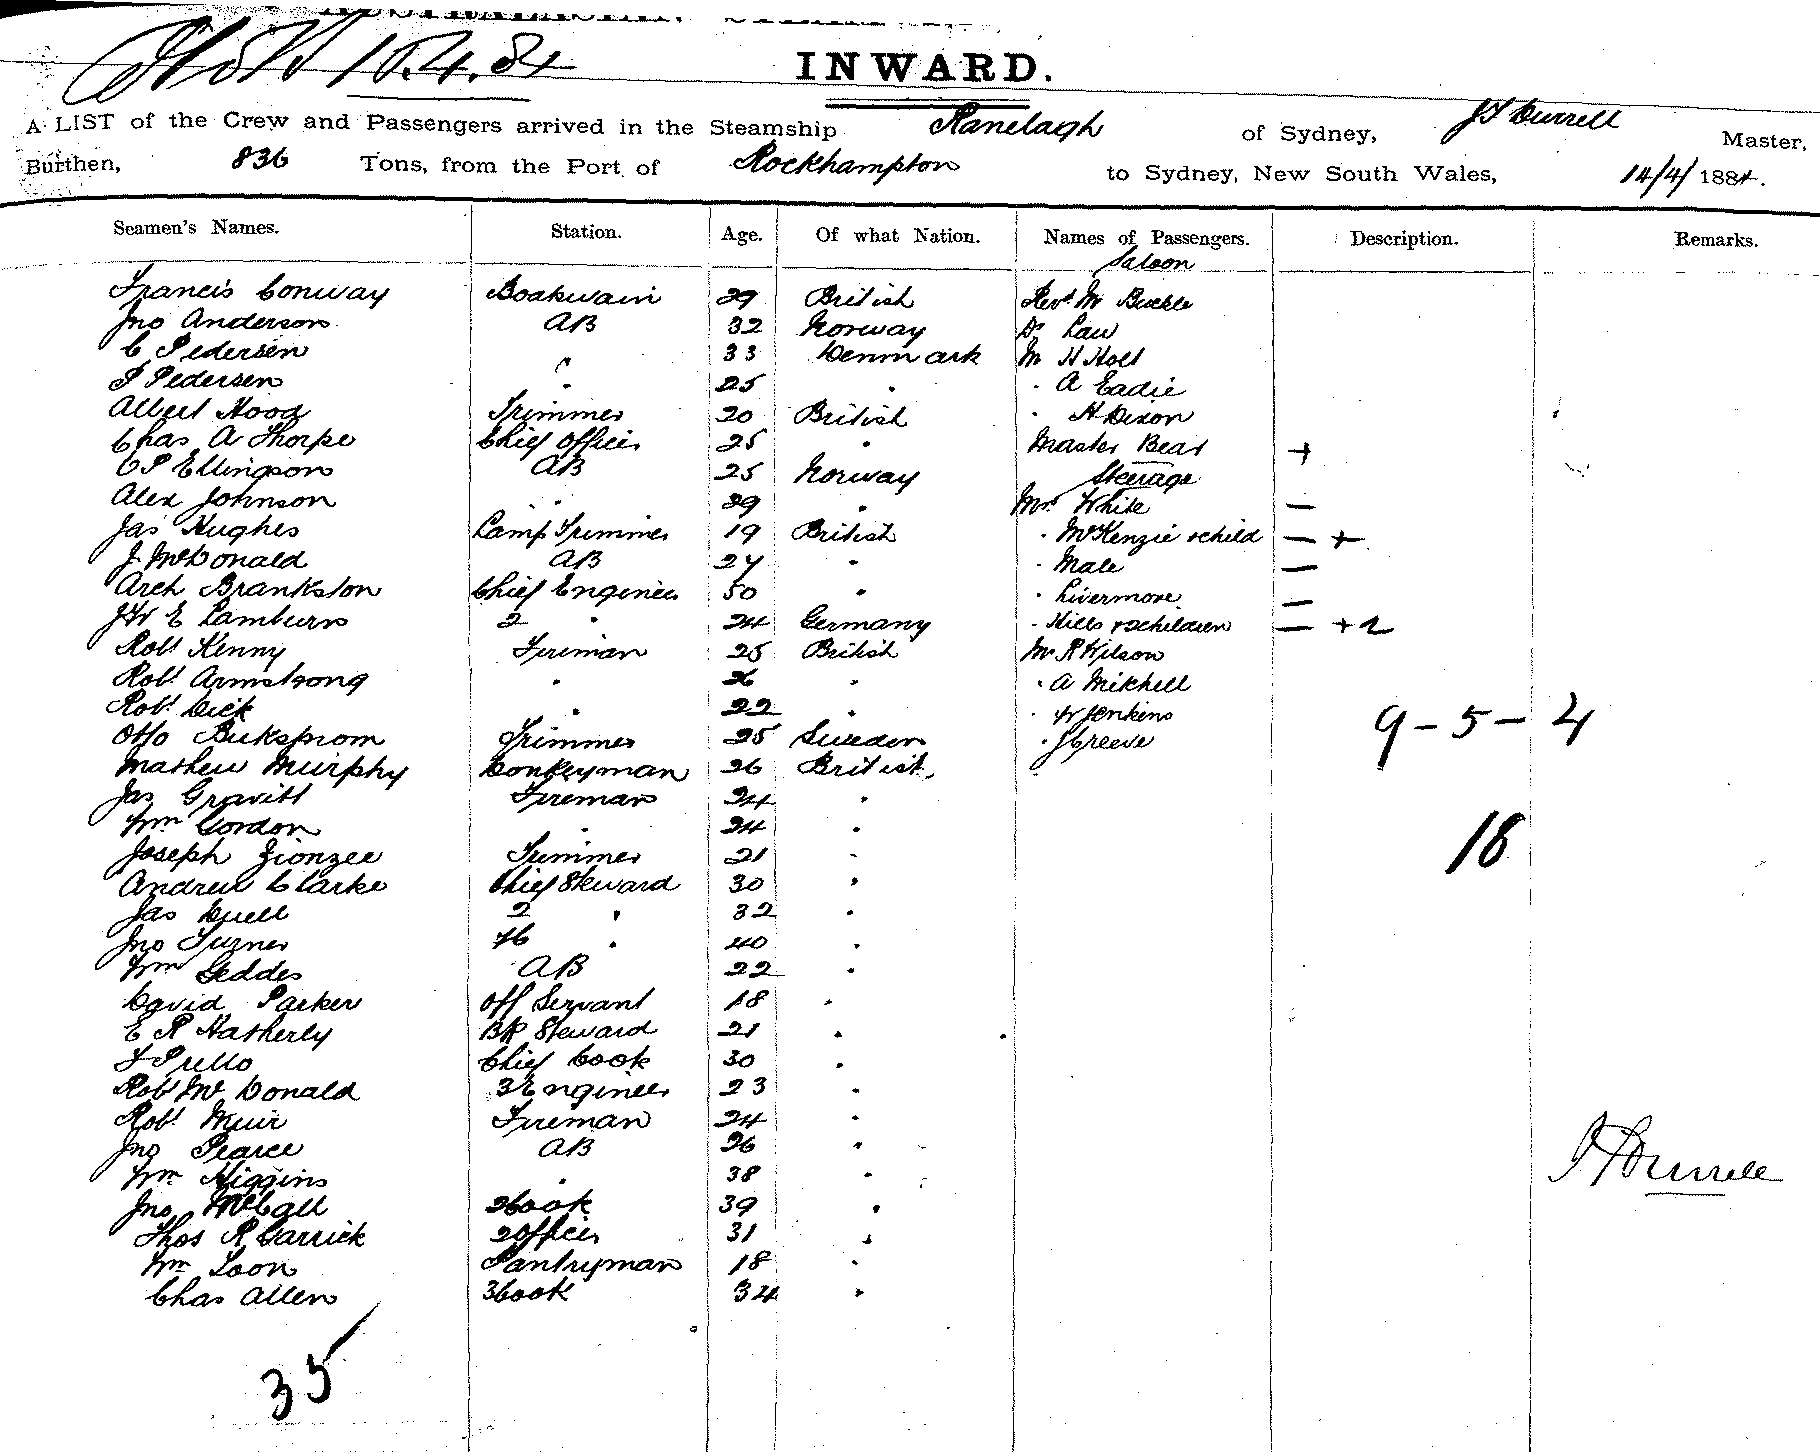 15.4.84
INWARD.
A LIST of the Crew and Passengers arrived in the Steamship Ranelagh of Sydney, J Durrell Master,
Burthen, 836 Tons, from the Port of Rockhampton to Sydney, New South Wales, 14/4/1884.
Seamen's Names. Station. Age. Of what Nation. Names of Passengers. Description. Remarks.
Saloon
Francis Conway Boatswain 29 British Revd Mr Buckle
Jno Anderson AB 32 Norway Dr Law
C Pedersen " 33 Denmark Mr H Holt
P Pedersen " 25 " " A Eadie
Albert Hood Trimmer 20 British " H Dixon
Chas A Thorpe Chief Officer 25 " Master Bear +
C P Ellingson AB 25 Norway Steerage
Alex Johnson " 29 " Mrs White —
Jas Hughes Lamp Trimmer 19 British " McKenzie & child — +
J. McDonald AB 27 " " Male —
Arch Brankston Chief Engineer 50 " " Livermore —
J W E Lamburn 2 " 24 Germany " Hills & 2 children — + 2
Robt Kenny Fireman 25 British Mr R Wilson
Robt Armstrong " 26 " " A Mitchell
Robt Dick " 22 " " W Jenkins 9-5-4
Otto Buksprom Trimmer 25 Sweden " J Greeve
Mathew Murphy Donkeyman 26 British
Jas Gravitt Fireman 24 "
Wm Gordon " 24 " 18
Joseph Zionzee Trimmer 21 "
Andrew Clarke Chief Steward 30 "
Jas Duell 2 " 32 "
Jno Turner " 40 "
Wm Geddes AB 22 "
David Parker Off Servant 18 "
E R Hatherly BR Steward 21 "
Chief Cook 30 "
Robt McDonald 3 Engineer 23 "
Robt Muir Fireman 24 "
Jno Pearce AB 26 "
Wm Higgins " 38 "
Jno McCall 2 Cook 39 "
Thos R Garrick 2 Officer 31 "
Wm Loon Pantryman 18 "
Chas Allen 3 Cook 34 "
J Durrell
35